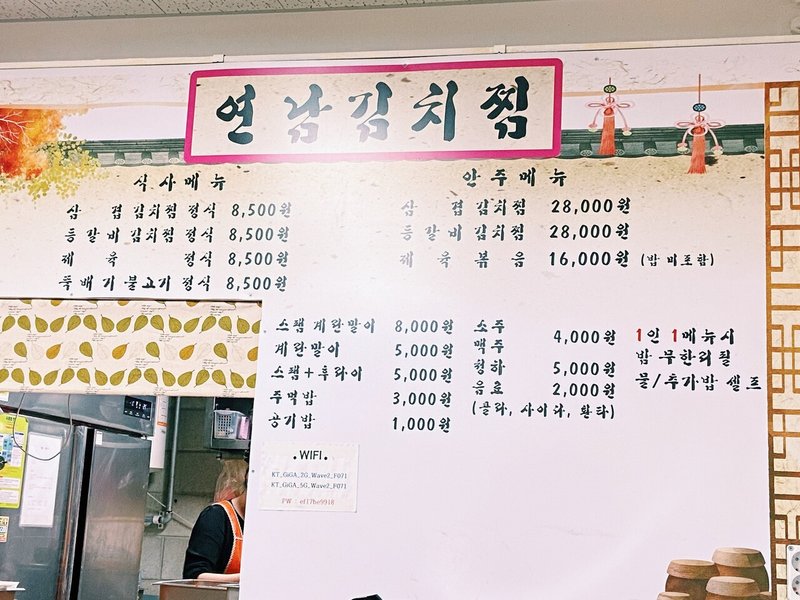 연남김치찜
식사메뉴
삼겹김치찜 정식 8,500원
등갈비김치찜 정식 8,500원
제육 정식 8,500원
뚝배기불고기 정식 8,500원
안주메뉴
삼겹김치찜 28,000원
등갈비김치찜 28,000원
제육볶음 16,000원 (밥 미포함)
스팸계란말이 8,000원
계란말이 5,000원
스팸+후라이 5,000원
주먹밥 3,000원
공기밥 1,000원
소주
맥주 4,000원
청하 5,000원
음료 2,000원
(콜라, 사이다, 환타)
1인 1메뉴시
밥 무한리필
물/추가밥 셀프
.WIFI.
KT_GiGA_2G_Wave2_F071
KT_GiGA_5G_Wave2_F071
PW : ef17be9918